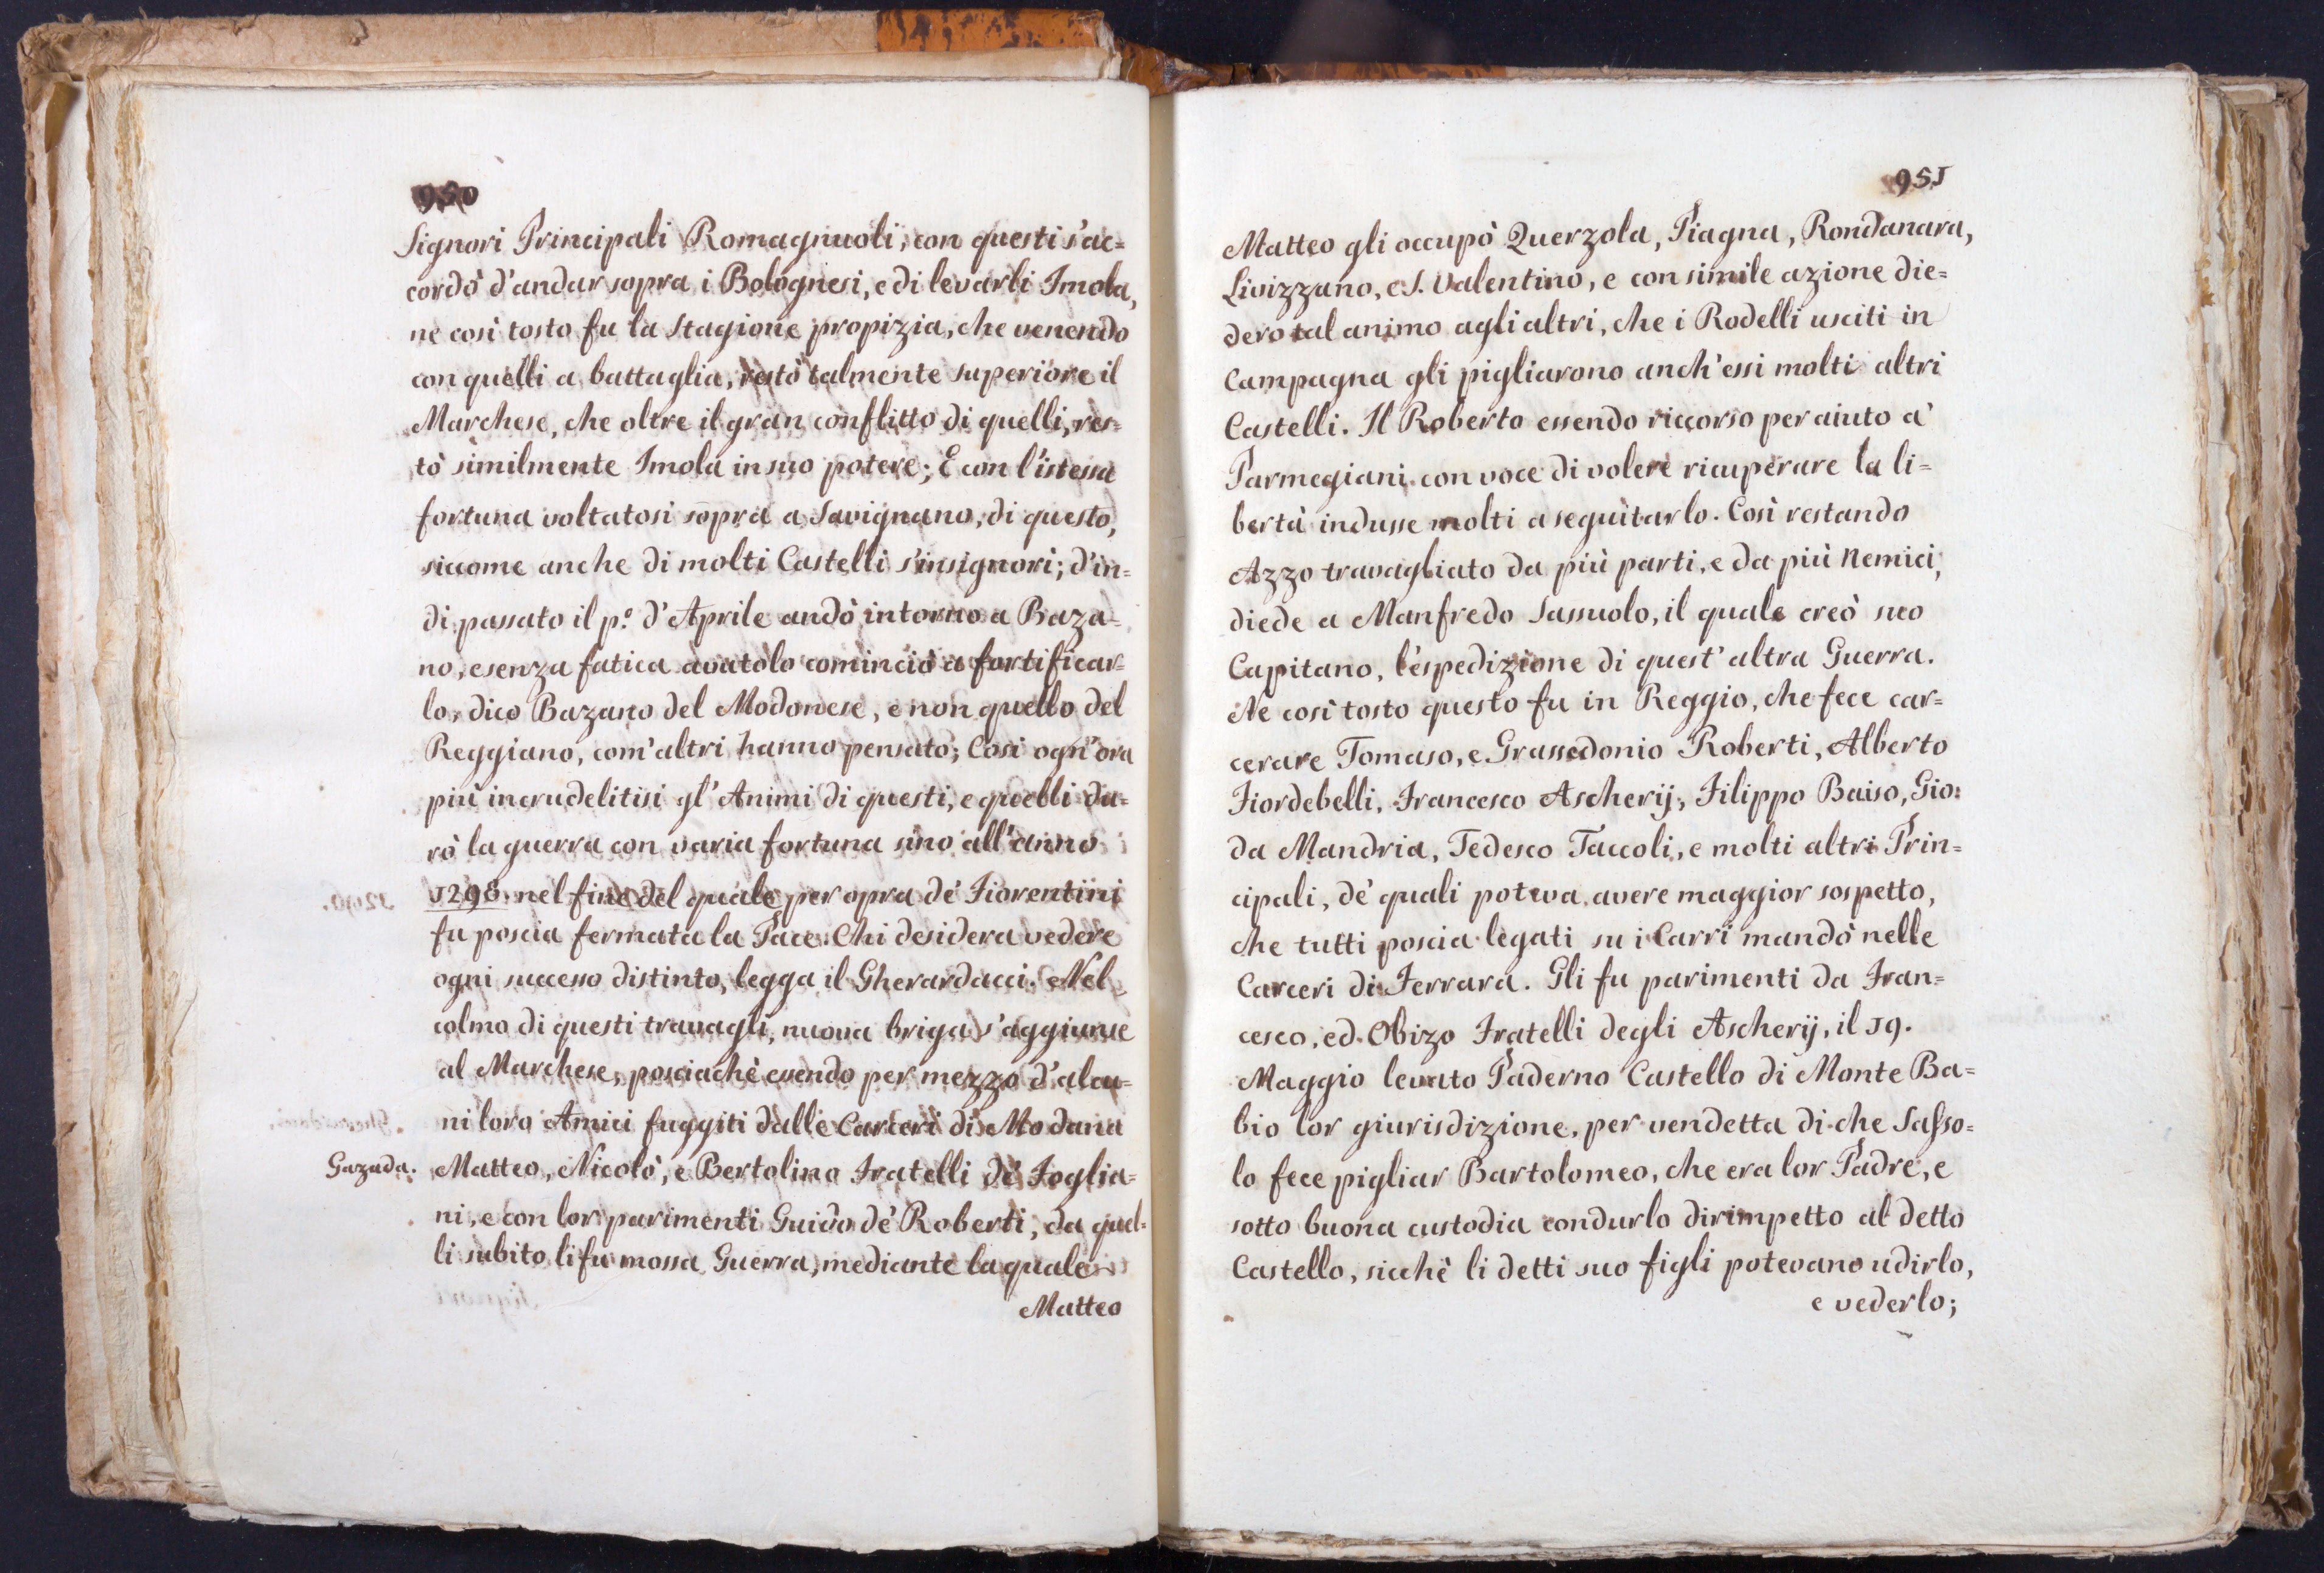 950
Signori Principali Romagnuoli, con questi s'ac=
cordò d'andar sopra i Bolognesi, e di levarli Imola,
ne così tosto fu la Stagione propizia, che venendo
con quelli a battaglia, restò talmente superiore il
Marchese, che oltre il gran conflitto di quelli, res=
tò similmente Imola in suo potere; E con l'istessa
fortuna voltatosi sopra a Savignano, di questo,
siccome anche di molti Castelli s'insignorì; d'in=
di passato il p.º d'Aprile andò intorno a Baza=
no, e senza fatica avutolo cominciò a fortificar=
lo, dico Bazano del Modonese, e non quello del
Reggiano, com'altri hanno pensato; Così ogn'ora
più incrudelitisi gl'Animi di questi, e quelli du=
rò la guerra con varia fortuna sino all'anno
1298. nel fine del quale per opra de' Fiorentini
fu poscia fermata la Pace. Chi desidera vedere
ogni successo distinto, legga il Gherardacci. Nel
colmo di questi travagli, nuova briga s'aggiunse
al Marchese, posciachè essendo per mezzo d'alcu=
ni loro Amici fuggiti dalle Carceri di Modana
Gazada. Matteo, Nicolò, e Bertolino Fratelli de' Foglia=
ni, e con lor parimenti Guido de' Roberti, da quel=
li subito li fu mossa Guerra, mediante la quale
Matteo
951
Matteo gli occupò Querzola, Piagna, Rondanara,
Livizzano, e S. Valentino, e con simile azione die=
dero tal animo agli altri, che i Rodelli usciti in
Campagna gli pigliarono anch'essi molti altri
Castelli. Il Roberto essendo riccorso per aiuto a'
Parmegiani con voce di volere ricuperare la li=
bertà indusse molti a seguitarlo. Così restando
Azzo travagliato da più parti, e da più Nemici,
diede a Manfredo Sassuolo, il quale creò suo
Capitano, l'espedizione di quest'altra Guerra.
Ne così tosto questo fu in Reggio, che fece car=
cerare Tomaso, e Grassedonio Roberti, Alberto
Fiordebelli, Francesco Ascherij, Filippo Baiso, Gio:
da Mandria, Tedesco Taccoli, e molti altri Prin=
cipali, de' quali poteva avere maggior sospetto,
che tutti poscia legati su i Carri mandò nelle
Carceri di Ferrara. Gli fu parimenti da Fran=
cesco, ed Obizo Fratelli degli Ascherij, il 19.
Maggio levato Paderno Castello di Monte Ba=
bio lor giurisdizione, per vendetta di che Sasso=
lo fece pigliar Bartolomeo, che era lor Padre, e
sotto buona custodia condurlo dirimpetto al detto
Castello, sicchè li detti suo figli potevano udirlo,
e vederlo;